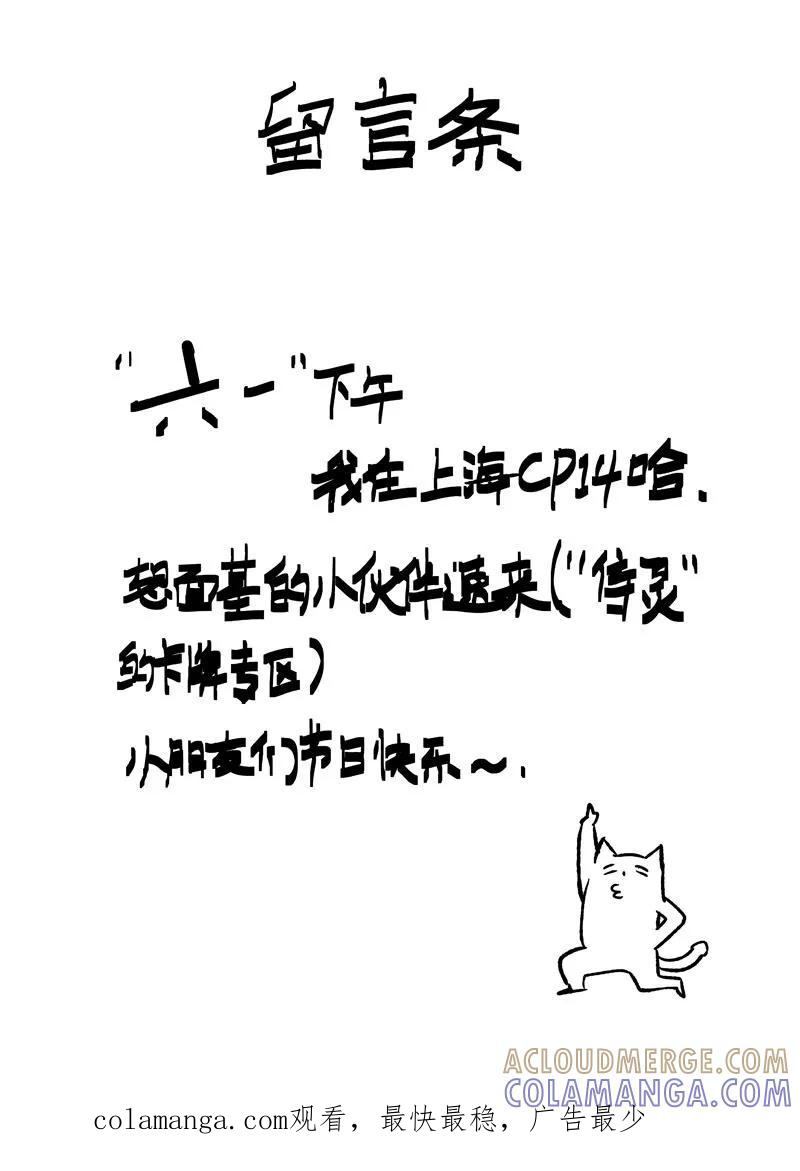 留言条
“六一”下午
我在上海CP14哈.
想面基的小伙伴速来(“侍灵”
的卡牌专区)
小朋友们节日快乐～.
ACLOUDMERGE.COM
COLAMANGA.COM
colamanga.com观看，最快最稳，广告最少